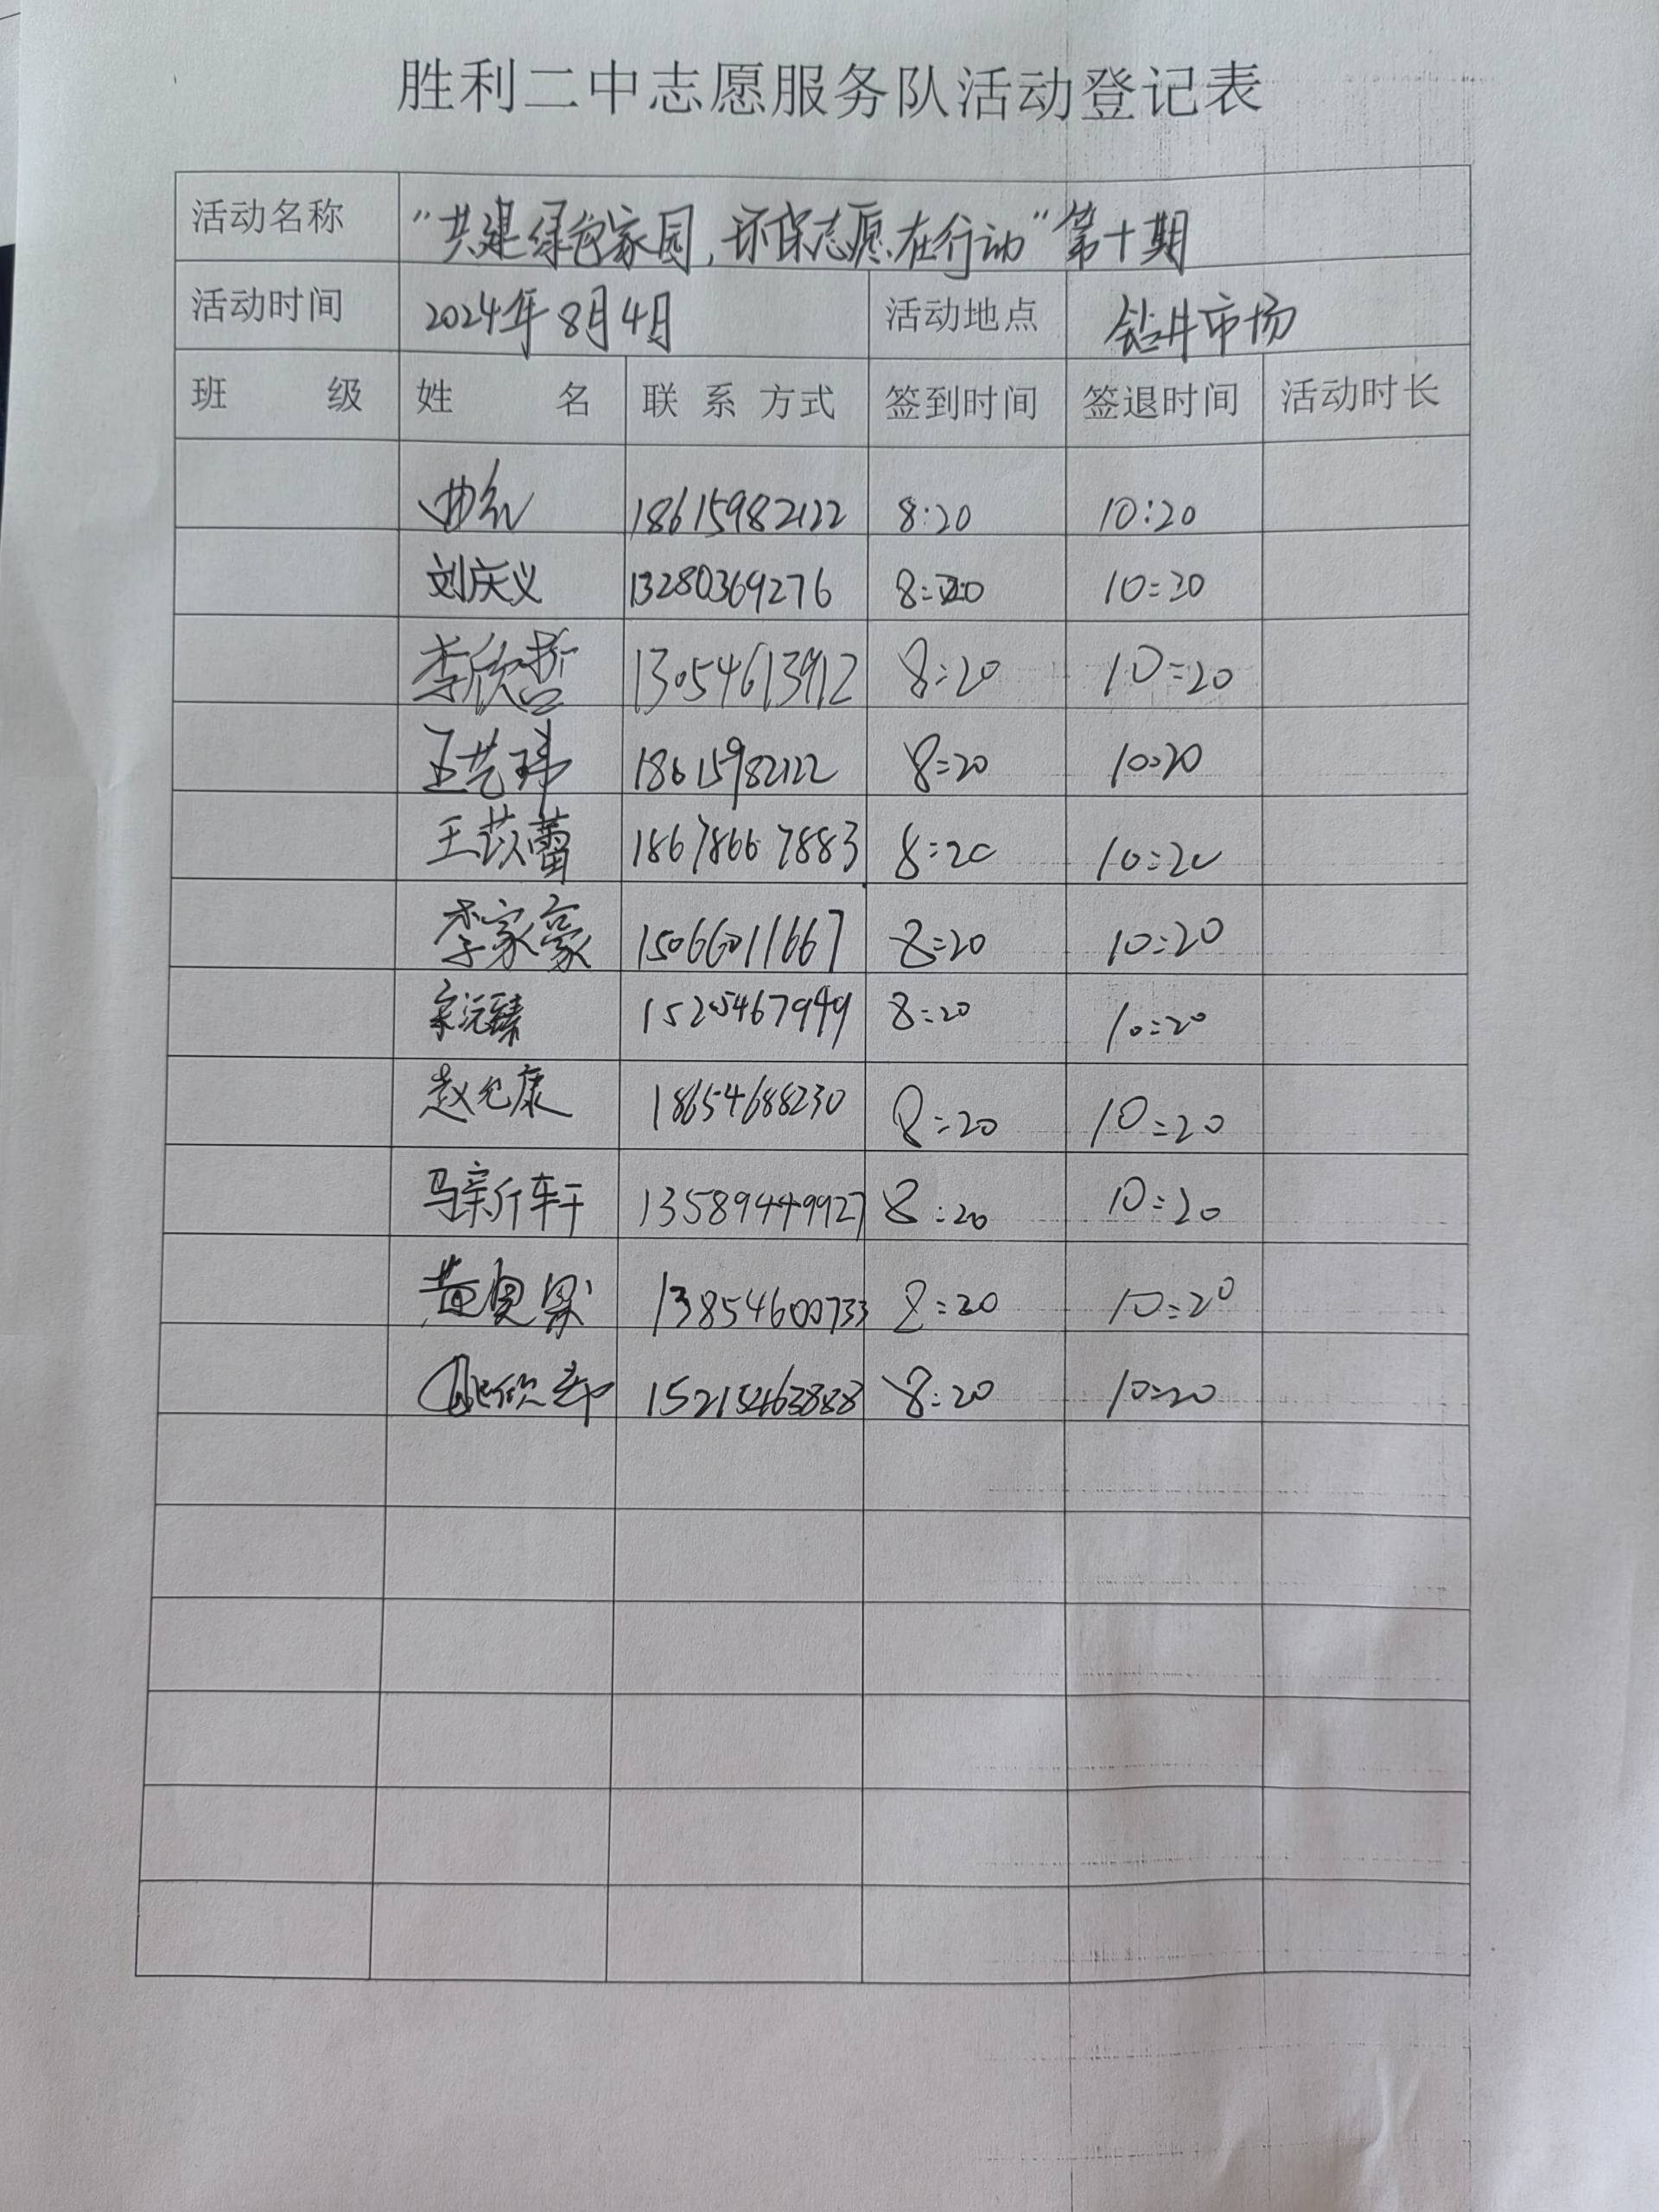 胜利二中志愿服务队活动登记表
活动名称 "共建绿色家园,环保志愿在行动"第十期
活动时间 2024年8月4日 活动地点 钻井市场
班 级 姓 名 联 系 方式 签到时间 签退时间 活动时长
曲红 18615982122 8:20 10:20
刘庆义 13280369276 8:20 10:20
李欣哲 13054613912 8:20 10:20
王艺玮 18615982122 8:20 10:20
王苡蕾 18678667883 8:20 10:20
李家豪 15066011667 8:20 10:20
宋沅臻 8:20 10:20
赵允康 18654688230 8:20 10:20
马新轩 13589449927 8:20 10:20
黄 13854600733 8:20 10:20
8:20 10:20